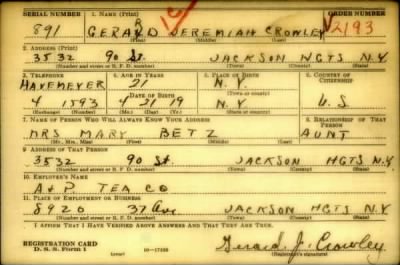 SERIAL NUMBER 1. NAME (Print) ORDER NUMBER
891 GERALD JEREMIAH CROWLEY V2193
R
(First) (Middle) (Last)
2. ADDRESS (Print)
3532 90 St. JACKSON HGTS N.Y.
(Number and street or R. F. D. number) (Town) (County) (State)
3. TELEPHONE 4. AGE IN YEARS 5. PLACE OF BIRTH 6. COUNTRY OF CITIZENSHIP
HAVEMEYER 21 N.Y.
(Town or county)
4 1593 4 21 19 N.Y. U.S
(Exchange) (Number) (Mo.) (Day) (Yr.) (State or country)
7. NAME OF PERSON WHO WILL ALWAYS KNOW YOUR ADDRESS 8. RELATIONSHIP OF THAT PERSON
MRS MARY BETZ AUNT
(Mr., Mrs., Miss) (First) (Middle) (Last)
9. ADDRESS OF THAT PERSON
3532 90 St. JACKSON HGTS N.Y.
(Number and street or R. F. D. number) (Town) (County) (State)
10. EMPLOYER'S NAME
A+P TEA CO
11. PLACE OF EMPLOYMENT OR BUSINESS
8920 37 Ave JACKSON HGTS N.Y
(Number and street or R. F. D. number) (Town) (County) (State)
I AFFIRM THAT I HAVE VERIFIED ABOVE ANSWERS AND THAT THEY ARE TRUE.
REGISTRATION CARD
D. S. S. Form 1 (over) 16-17105 Gerard J. Crowley
(Registrant's signature)